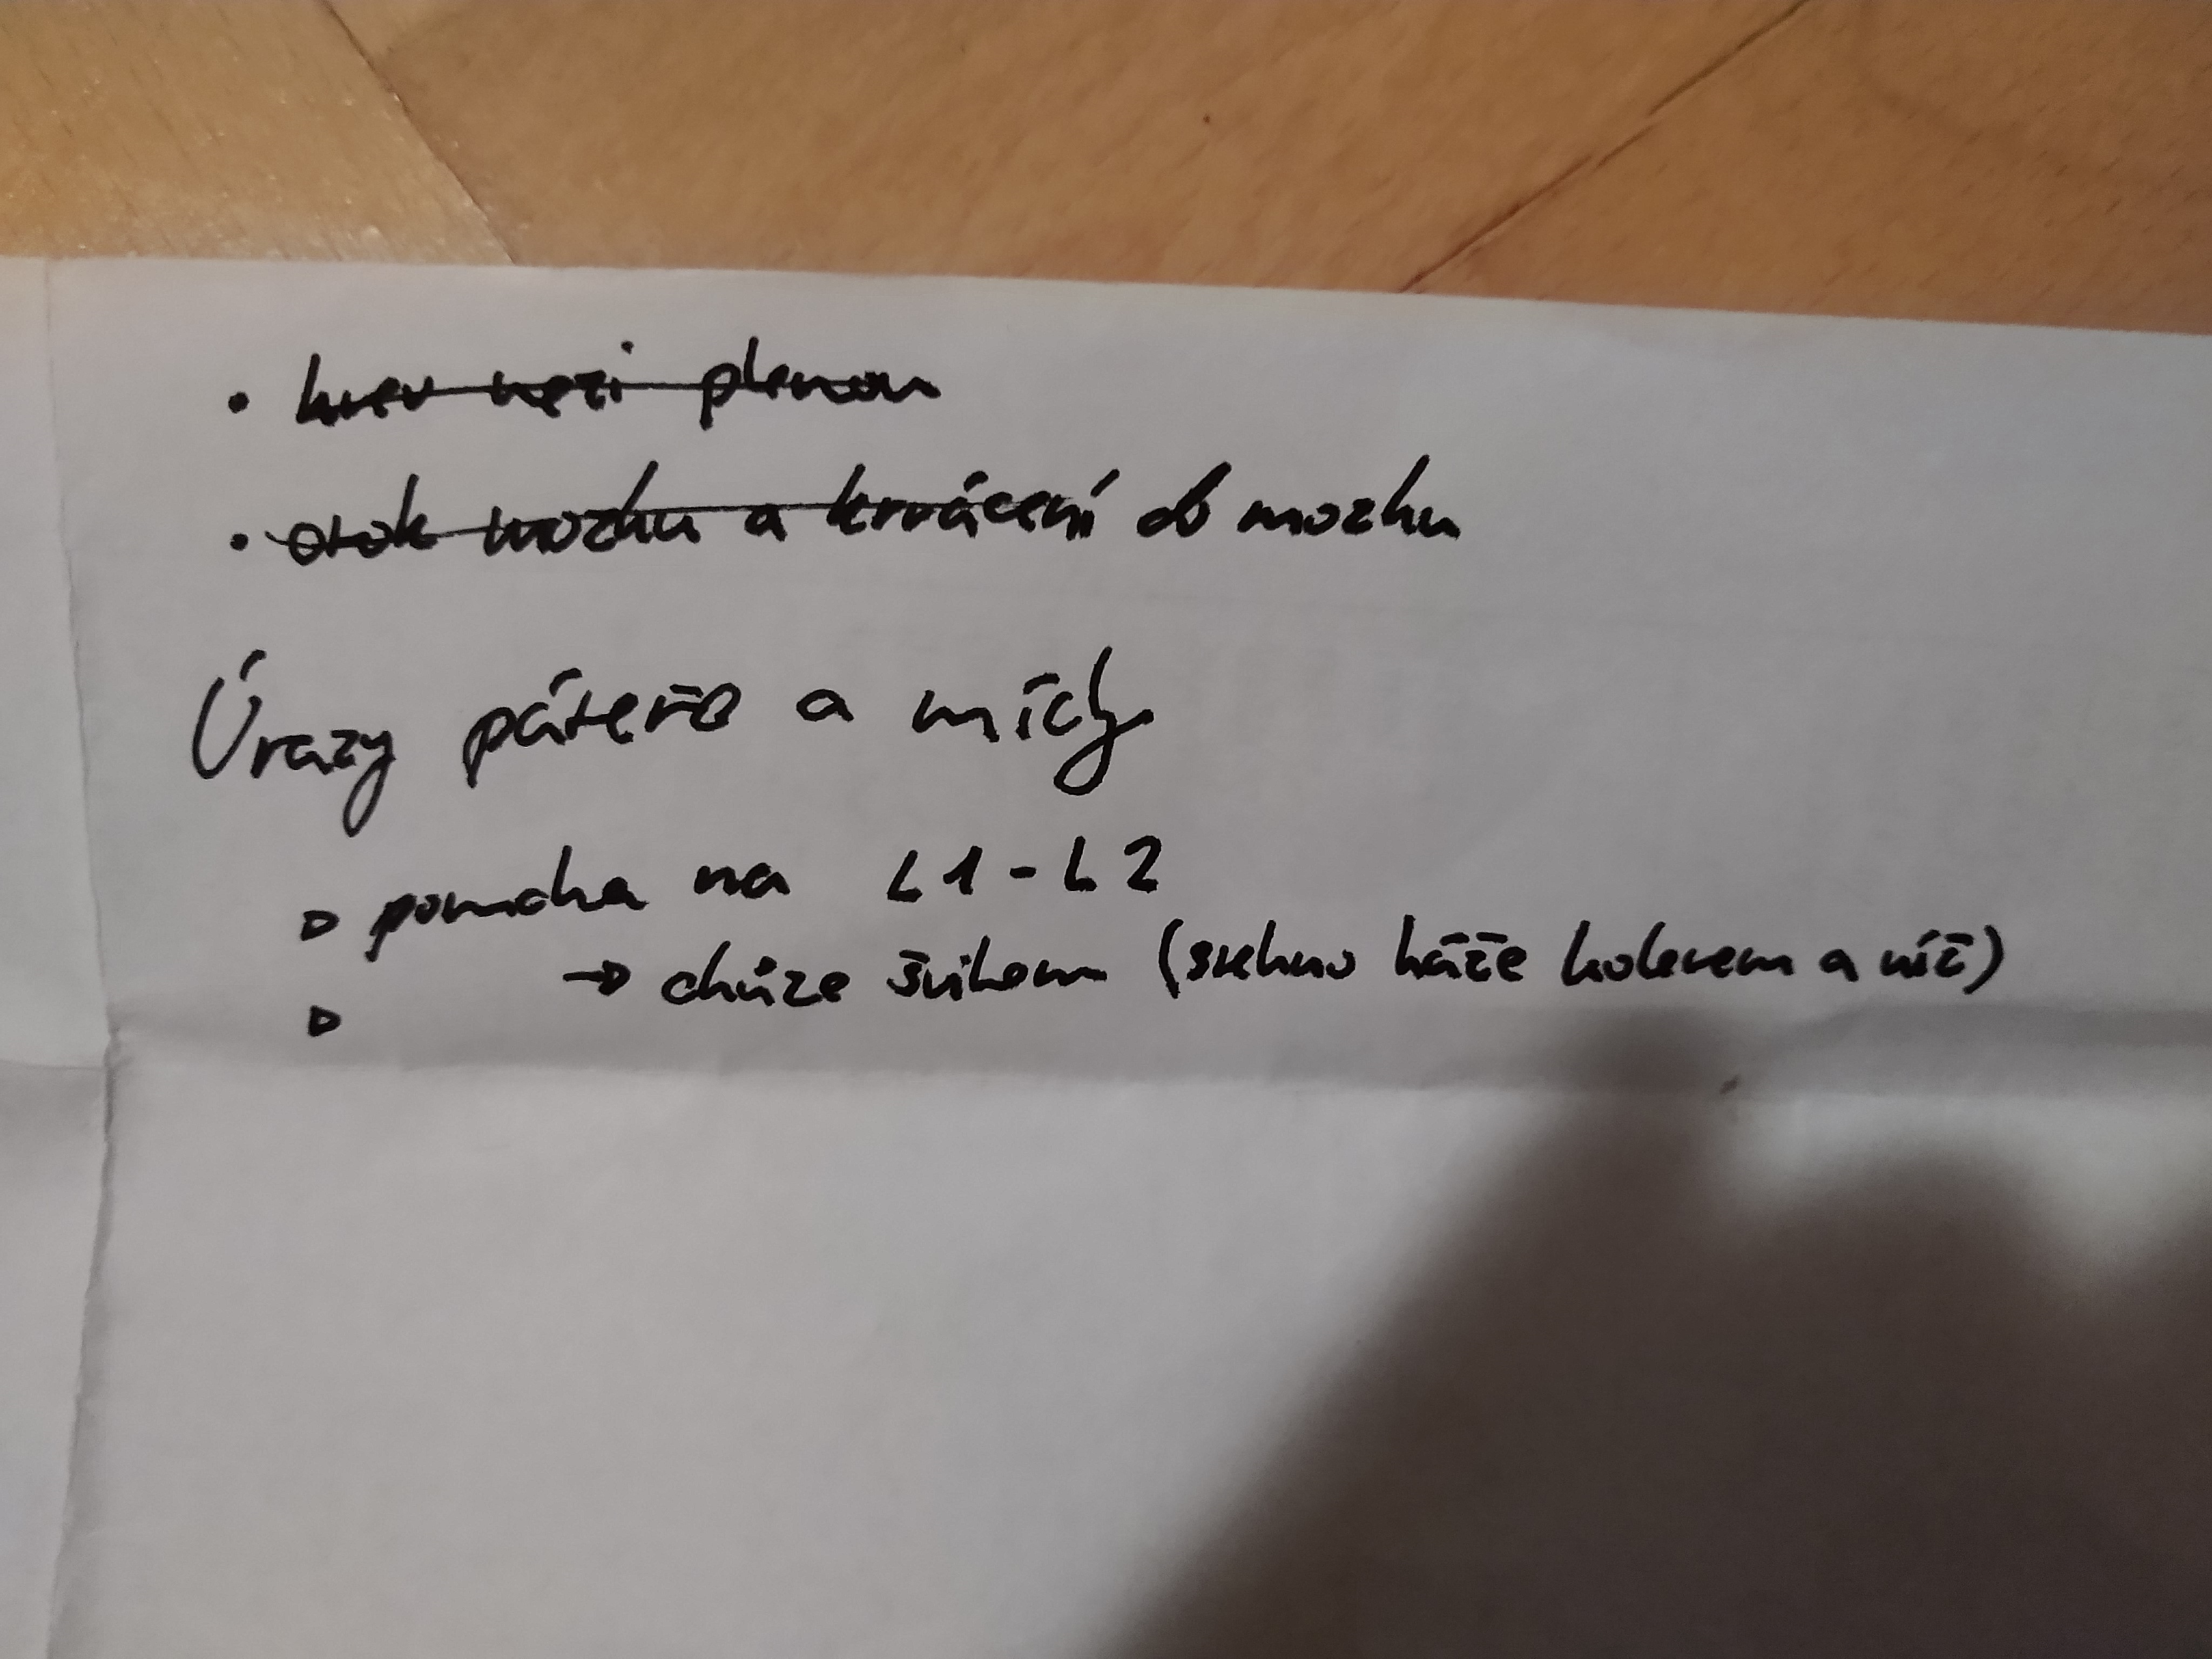 • krev mezi plenam
• otok mozku a krvácení do mozku
Úrazy páteře a míchy
▹ porucha na L1-L2
→ chůze švihem ( háže kolenem a níž)
▹